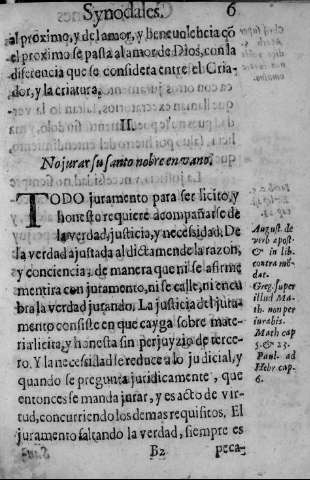 Synodales. 6
al proximo, y del amor, y benevolencia cõ
el proximo se passa al amor de Dios, con la
diferencia que se considera entre el Cria-
dor, y la criatura.
II.
No jurar su santo nõbre en vano.
TODO juramento para ser licito, y
honesto requiere acompañarse de
la verdad, justicia, y necesidad. De
la verdad ajustada al dictamen de la razon,
y conciencia, de manera que ni se afirme
mentira con juramento, ni se calle, ni encu
bra la verdad jurando. La justicia del jura-
mento consiste en que cayga sobre mate-
ria licita, y honesta sin perjuyzio de terce-
ro. Y la necessidad se reduce a lo judicial, y
quando se pregunta juridicamente, que
entonces se manda jurar, y es acto de vir-
tud, concurriendo los demas requisitos. El
juramento faltando la verdad, siempre es
B2 peca-
August. de
verb apost-
& in lib.
contra mẽ-
dac.
Greg. super
illud Ma-
th. non per
iurabis.
Math cap
5. & 23.
Paul. ad
Hebr cap.
6.